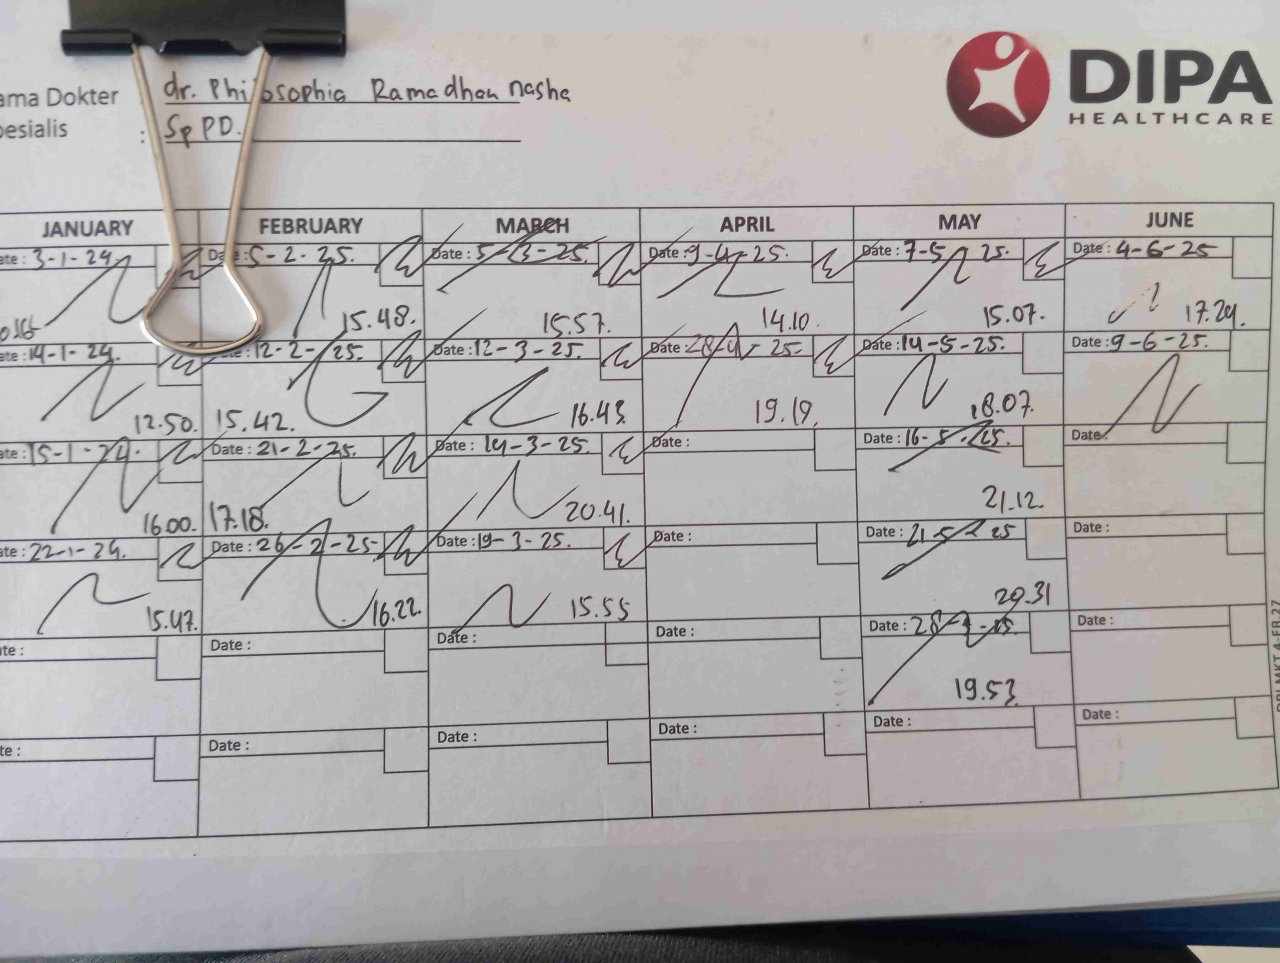 DIPA
HEALTHCARE
ama Dokter : dr. Philosophia Ramadhan nasha
pesialis : Sp PD.
JANUARY FEBRUARY MARCH APRIL MAY JUNE
ate : 3-1-24. Date : 5-2-25. Date : 5-3-25. Date : 9-4-25. Date : 7-5-25. Date : 4-6-25
15.48. 15.57. 14.10. 15.07. 17.29.
ate : 14-1-24. 12-2-25. Date : 12-3-25. Date : 25. Date : 14-5-25. Date : 9-6-25.
12.50. 15.42. 16.43. 19.19. 18.07.
ate : 15-1-24. Date : 21-2-25. Date : 14-3-25. Date : Date : 16-5-25. Date :
16.00. 17.18. 20.41. 21.12.
ate : 22-1-24. Date : 26-2-25- Date : 19-3-25. Date : Date : 21-5-25 Date :
15.47. 16.22. 15.55 20.31
ate : Date : Date : Date : Date : 28-5-25. Date :
19.53.
te : Date : Date : Date : Date : Date :